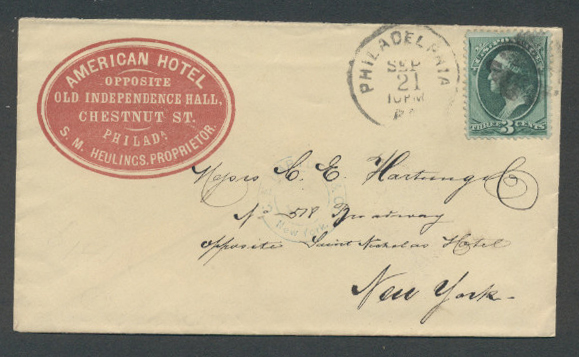 AMERICAN HOTEL
OPPOSITE
OLD INDEPENDENCE HALL,
CHESTNUT ST.
PHILADA
S. M. HEULINGS, PROPRIETOR.
PHILADELPHIA
SEP
21
10 PM
PA
THREE 3 CENTS
Messrs C. E. Hartung &
No 578 Broadway
opposite Saint Nicholas Hotel
New York
New York